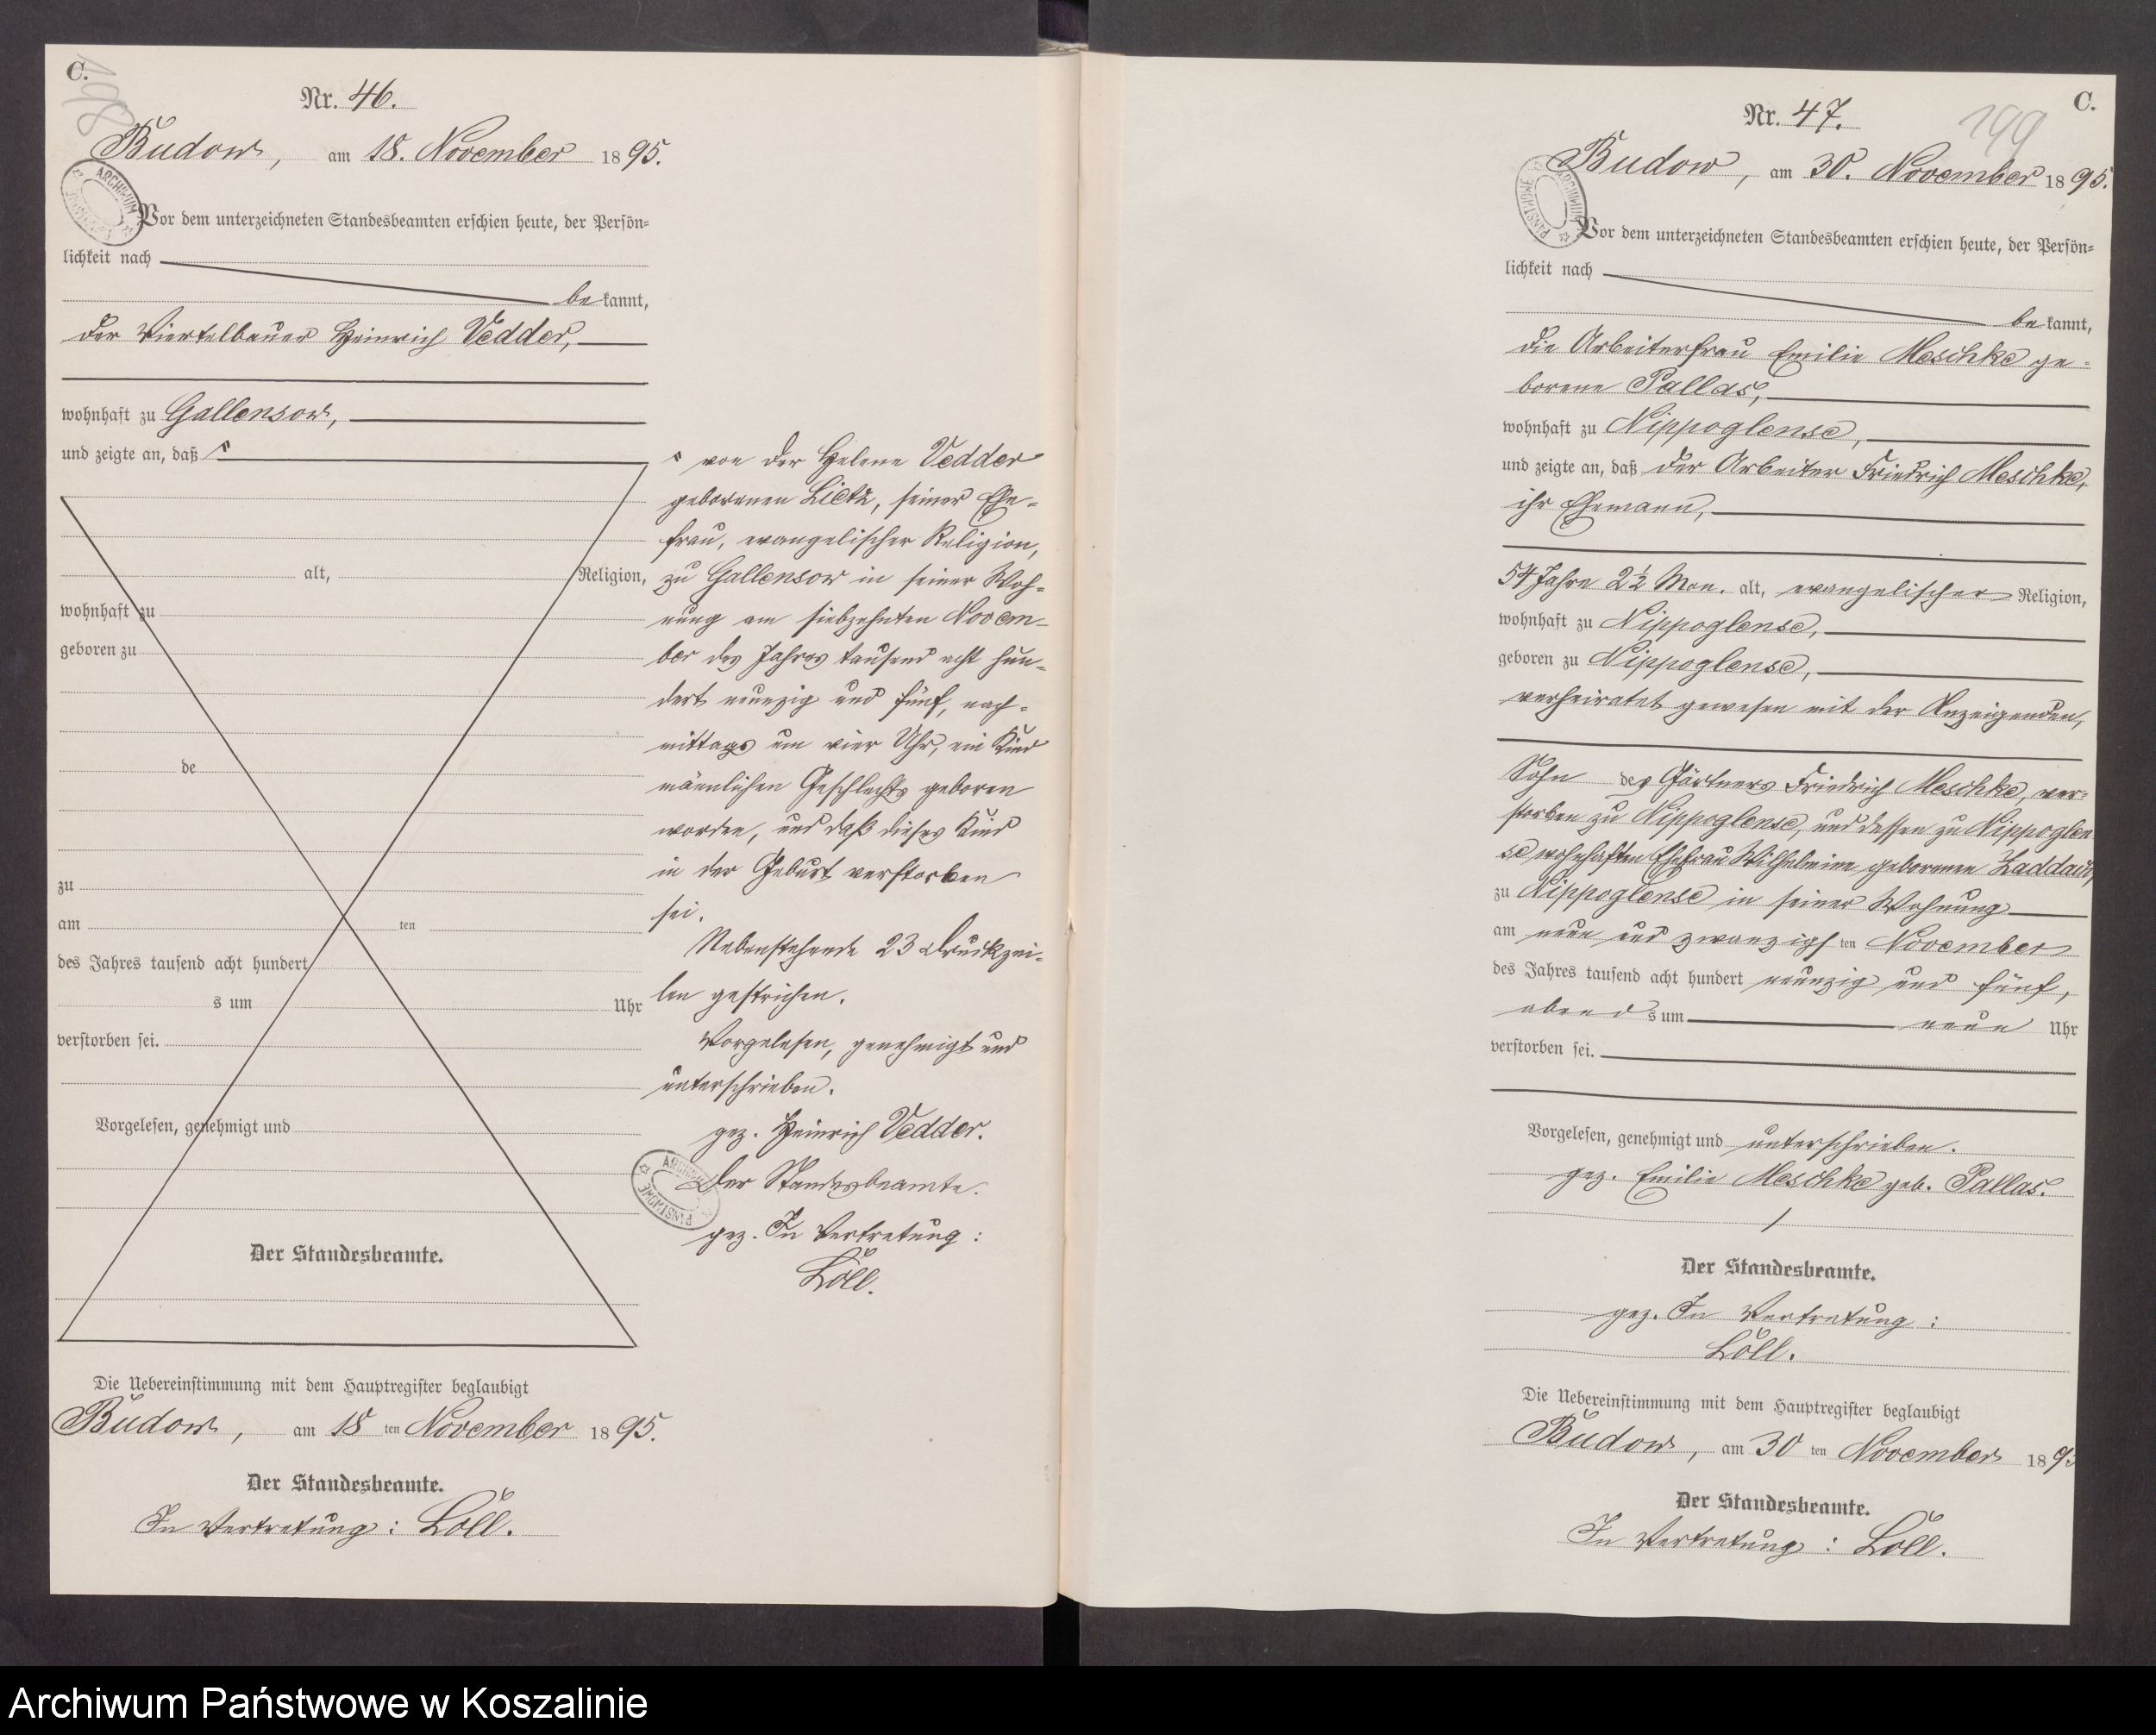 C.
198
Nr. 46.
Budow, am 18. November 1895.
ARCHIWUM PAŃSTWOWE
Vor dem unterzeichneten Standesbeamten erschien heute, der Persön-
lichkeit nach
bekannt,
der Viertelbauer Heinrich Vedder,
wohnhaft zu Gallensow,
und zeigte an, daß
alt, Religion,
wohnhaft zu
geboren zu
de
zu
am ten
des Jahres tausend acht hundert
s um Uhr
verstorben sei.
Vorgelesen, genehmigt und
Der Standesbeamte.
von der Helene Vedder
geborenen Lietz, seiner Ehe-
frau, evangelischer Religion,
zu Gallensow in seiner Woh-
nung am siebzehnten Novem-
ber des Jahres tausend acht hun-
dert neunzig und fünf, nach-
mittags um vier Uhr, ein Kind
männlichen Geschlechts geboren
worden, und daß dieses Kind
in der Geburt verstorben
sei.
Nebenstehende 23 Druckzei-
len gestrichen.
Vorgelesen, genehmigt und
unterschrieben.
gez. Heinrich Vedder.
Der Standesbeamte.
ARCHIWUM PAŃSTWOWE
gez. In Vertretung:
Löll.
Die Uebereinstimmung mit dem Hauptregister beglaubigt
Budow, am 18 ten November 1895.
Der Standesbeamte.
In Vertretung: Löll.
C.
199
Nr. 47.
Budow, am 30. November 1895.
ARCHIWUM PAŃSTWOWE
Vor dem unterzeichneten Standesbeamten erschien heute, der Persön-
lichkeit nach
bekannt,
die Arbeiterfrau Emilie Meschke ge-
borene Pallas,
wohnhaft zu Nippoglense,
und zeigte an, daß der Arbeiter Friedrich Meschke,
ihr Ehemann,
54 Jahre 2½ Mon. alt, evangelischer Religion,
wohnhaft zu Nippoglense,
geboren zu Nippoglense,
verheiratet gewesen mit der Anzeigenden,
Sohn des Gärtners Friedrich Meschke, ver-
storben zu Nippoglense, und dessen zu Nippoglen
se wohnhaften Ehefrau Wilhelmine geborenen Zaddach,
zu Nippoglense in seiner Wohnung
am neun und zwanzigs ten November
des Jahres tausend acht hundert neunzig und fünf,
abends um neun Uhr
verstorben sei.
Vorgelesen, genehmigt und unterschrieben.
gez. Emilie Meschke geb. Pallas.
Der Standesbeamte.
gez. In Vertretung:
Löll.
Die Uebereinstimmung mit dem Hauptregister beglaubigt
Budow, am 30 ten November 189
Der Standesbeamte.
In Vertretung: Löll.
Archiwum Państwowe w Koszalinie